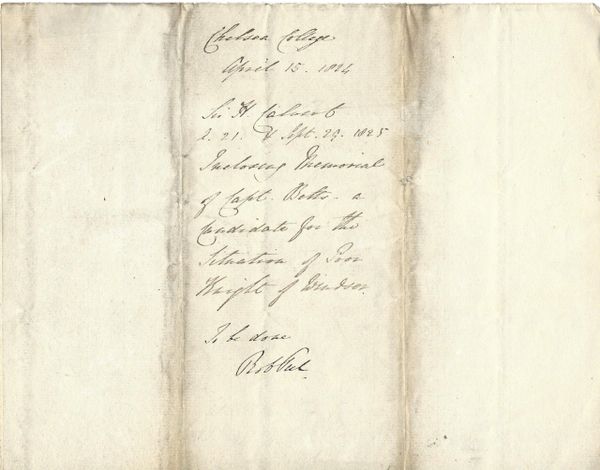 Chelsea College
April 15. 1824
Sir H. Calvert
2. 21. & Sept. 29. 1825
Inclosing Memorial
of Capt. Betts - a
Candidate for the
Situation of Poor
Knight of Windsor.
To be done
Rob Peel